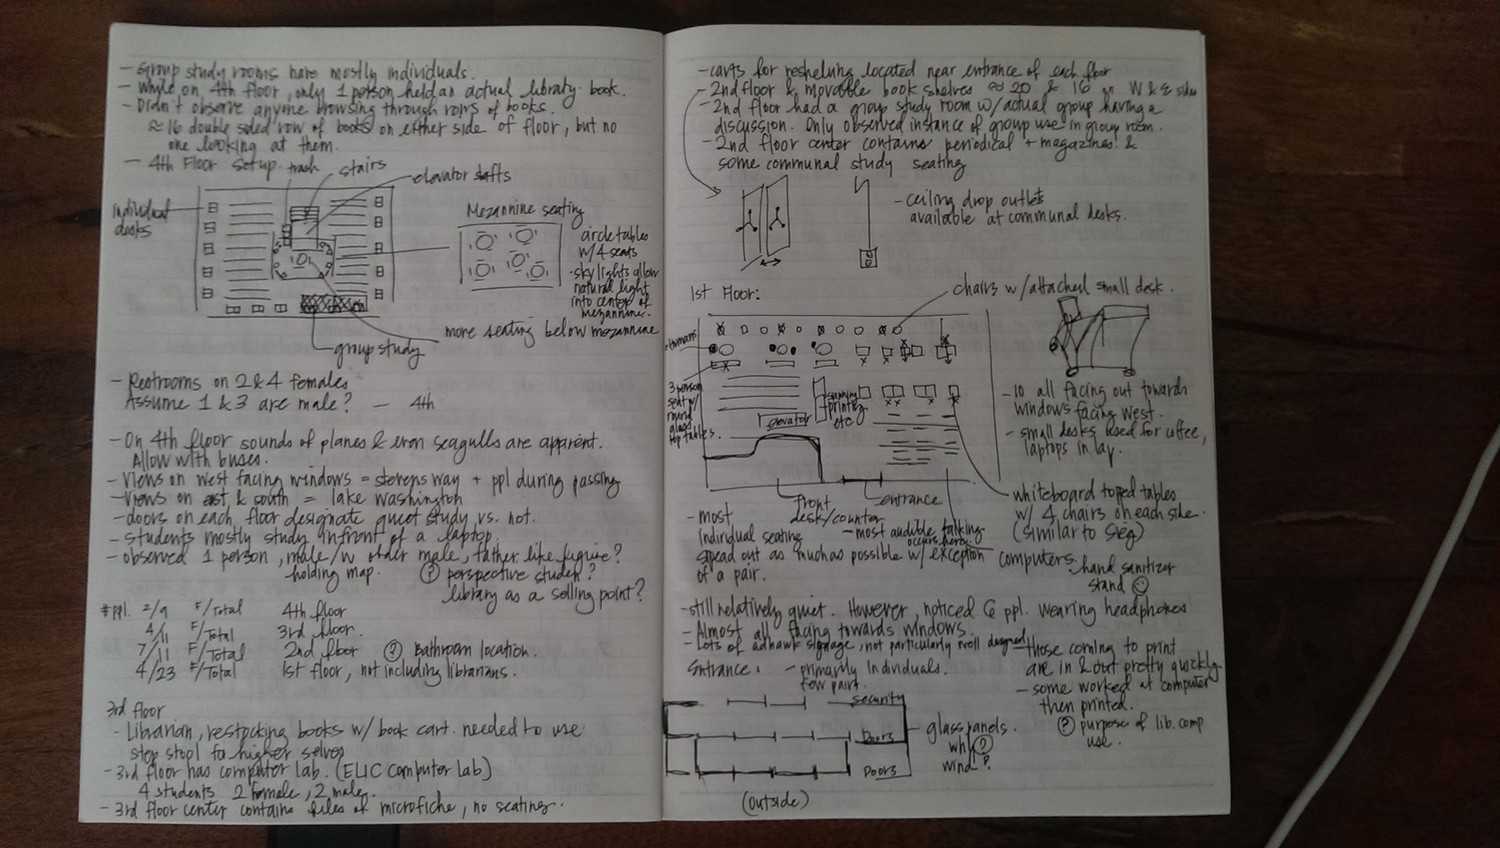 - Group study rooms have mostly individuals.
- While on 4th floor, only 1 person held an actual library book.
- Didn't observe anyone browsing through rows of books.
≈ 16 double sided row of books on either side of floor, but no
one looking at them.
- 4th Floor Setup
trash
stairs
elevator shafts
individual
desks
Mezannine seating
circle tables
w/ 4 seats
- sky lights allow
natural light
into center of
mezannine.
more seating below mezannine
group study
- Restrooms on 2 & 4 females
Assume 1 & 3 are male? - 4th
- On 4th floor sounds of planes & even seagulls are apparent.
Allow with buses.
- Views on west facing windows = stevens way + ppl during passing
- Views on east & south = lake washington
- doors on each floor designate quiet study vs. not.
- Students mostly study infront of a laptop.
- observed 1 person, male/w older male, father like figure?
holding map. ? perspective student?
library as a selling point?
# ppl. 2/9 F/Total 4th floor
4/11 F/Total 3rd floor.
7/11 F/Total 2nd floor ? Bathroom location.
4/23 F/Total 1st floor, not including librarians.
3rd floor
- Librarian, restocking books w/ book cart. needed to use
step stool for higher selves
- 3rd floor has computer lab. (ELIC Computer lab)
4 students 2 female, 2 male.
- 3rd floor center contains files of microfiche, no seating.
- carts for reshelving located near entrance of each floor
- 2nd floor & movable book shelves ≈ 20 & 16 on W & E sides
- 2nd floor had a group study room w/ actual group having a
discussion. Only observed instance of group use in group room.
- 2nd floor center contains periodical + magazines &
some communal study seating
- ceiling drop outlets
available at communal desks.
1st Floor:
chairs w/ attached small desk.
3 person
seat w/
round
glass
top tables.
elevator
scanning
printing
etc
front
desk/counter
entrance
- 10 all facing out towards
windows facing west.
- small desks used for coffee,
laptops in lap.
whiteboard topped tables
w/ 4 chairs on each side.
(similar to Sieg)
- most
individual seating
spread out as much as possible w/ exception
of a pair.
- most audible talking
occurs here.
computers
hand sanitizer
stand
- still relatively quiet. However, noticed 6 ppl. wearing headphones
- Almost all facing towards windows.
- Lots of adhawk signage, not particularly well designed
Entrance: - primarily individuals.
few pairs.
security
Doors
Doors
glass panels.
why ?
wind?
(outside)
- those coming to print
are in & out pretty quickly
- some worked at computer
then printed.
? purpose of lib. comp
use.